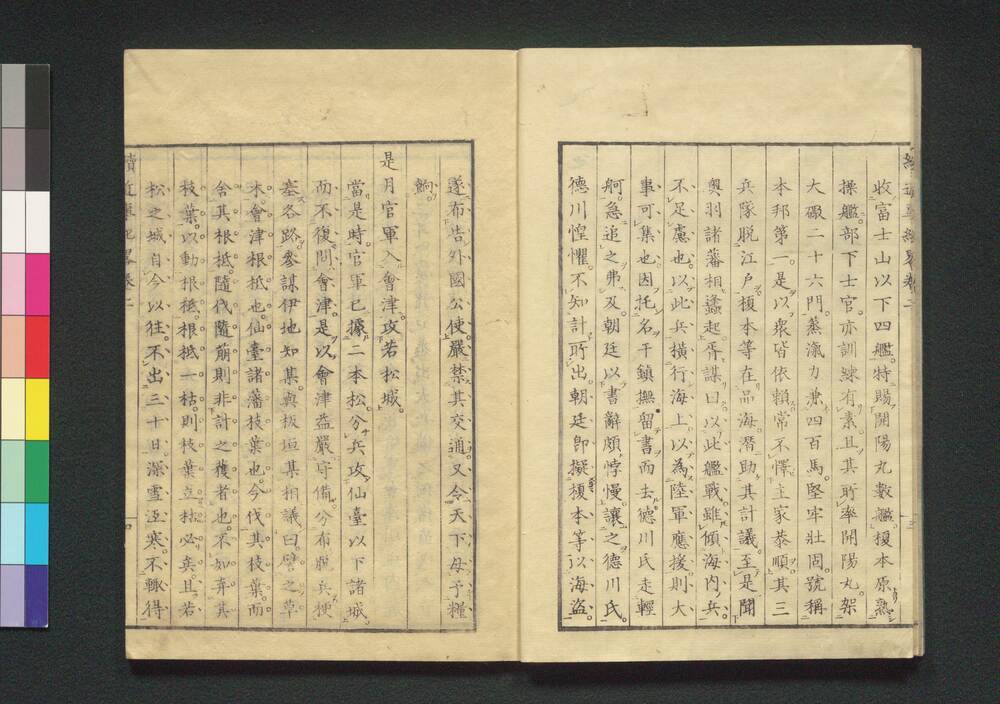 收富士山以下四艦。特賜開陽丸數艦。榎本原熟
操艦。部下士官。亦訓練有素。且其所率開陽丸。架
大礮二十六門。蒸滊力兼四百馬。堅牢壯固。號稱
本邦第一。是以衆皆依賴。常不懌主家恭順。其三
兵隊脱江戸。榎本等在品海。潛助其計議。至是聞
奧羽諸藩相蠭起。胥謀曰。以此艦戰。雖傾海内兵。
不足慮也。以此兵橫行海上。以為陸軍應援。則大
事可集也。因托名干鎮撫。留書而去。德川氏走輕
舸。急追之弗及。朝廷以書辭頗悖慢。讓之德川氏。
德川惶懼。不知計所出。朝廷卽擬榎本等以海盜。
遂布告外國公使。嚴禁其交通。又令天下毋予糧
餉。
是月官軍入會津。攻若松城。
當是時。官軍已據二本松。分兵攻仙臺以下諸城。
而不復問會津。是以會津益嚴守備。分布戰兵。梗
塞各路。參謀伊地知某。與板垣某相議曰。譬之草
木。會津根柢也。仙臺諸藩枝葉也。今伐其枝葉。而
舍其根柢。隨伐隨崩。則非計之獲者也。不如弃其
枝葉。以動根柢。根柢一枯。則枝葉立枯必矣。且若
松之城。自今以往。不出三十日。深雪沍寒。不輙得